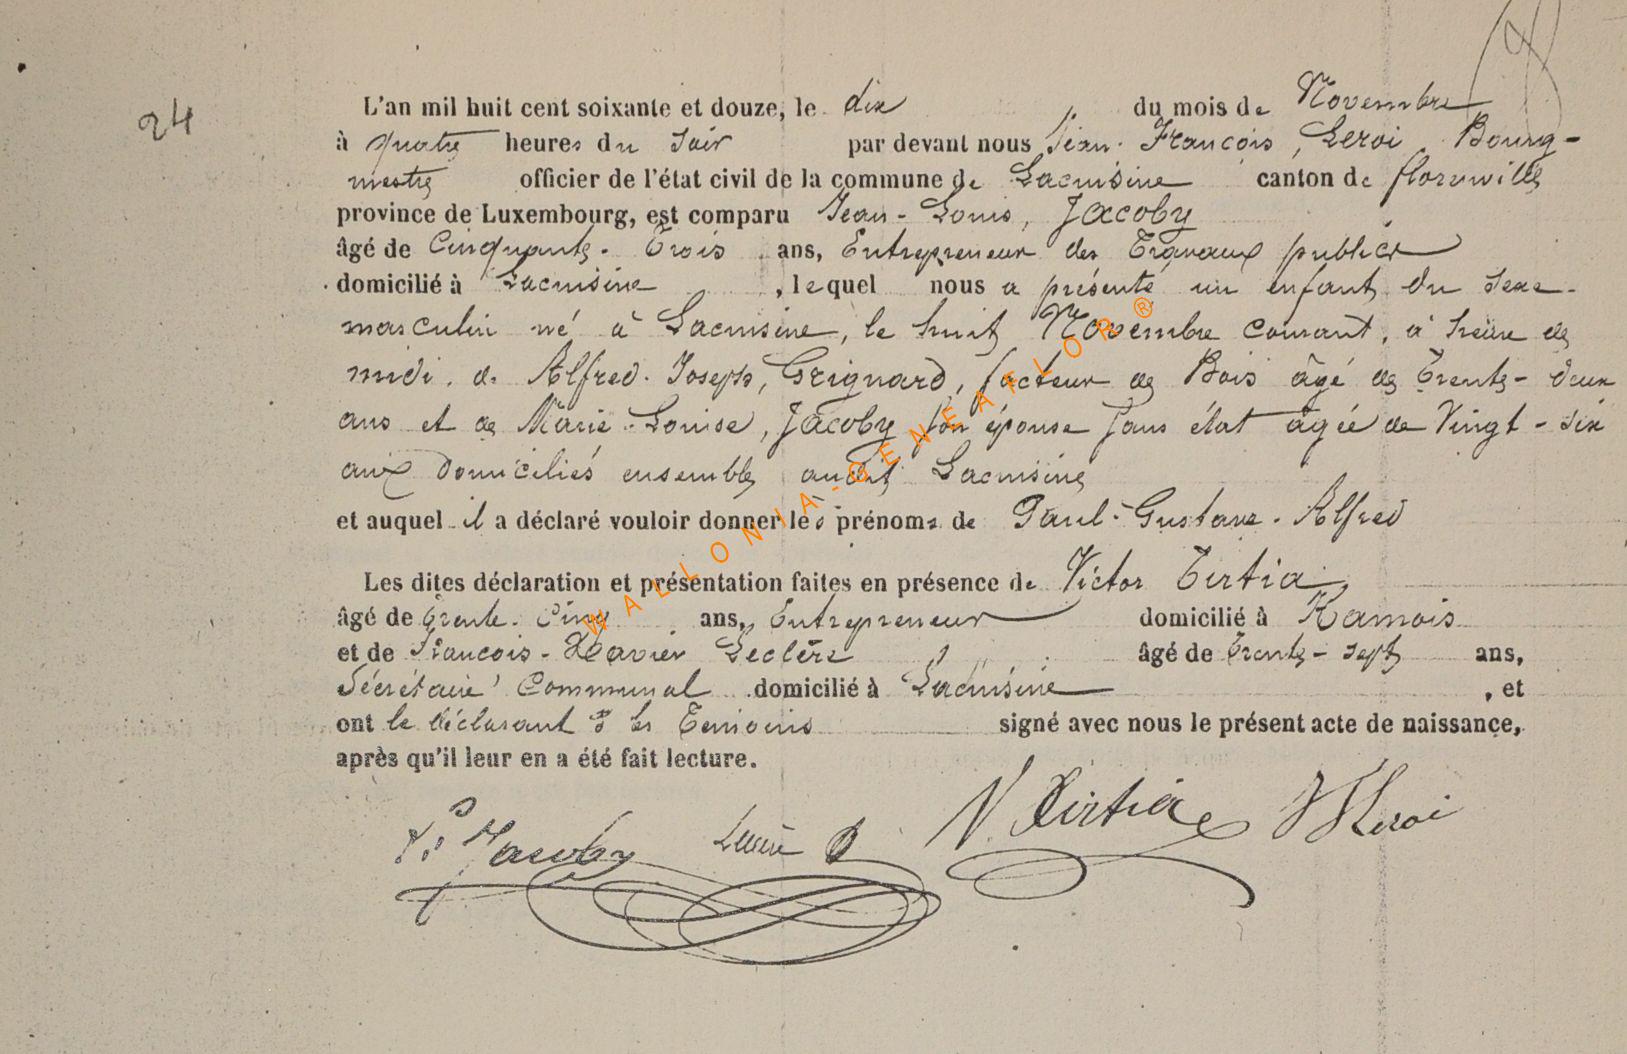 24
L'an mil huit cent soixante et douze, le dix du mois de Novembre
à quatre heures du soir par devant nous Jean-François, Leroi Bourg-
mestre officier de l'état civil de la commune de Lacuisine canton de florenville
province de Luxembourg, est comparu Jean-Louis, Jacoby
âgé de Cinquante-Trois ans, Entrepreneur des Travaux publics
domicilié à Lacuisine, lequel nous a présenté un enfant du sexe
masculin né à Lacuisine, le huit Novembre courant, à heure de
midi, de Alfred-Joseph, Grignard, facteur de Bois âgé de Trente-deux
ans et de Marie-Louise, Jacoby son épouse sans état âgée de Vingt-six
ans domiciliés ensemble audit Lacuisine
et auquel il a déclaré vouloir donner les prénoms de Paul-Gustave-Alfred
Les dites déclaration et présentation faites en présence de Victor Tirtia,
âgé de trente-Cinq ans, Entrepreneur domicilié à Hamois
et de François-Xavier Leclère âgé de Trente-sept ans,
Sécrétaire Communal domicilié à Lacuisine, et
ont le déclarant & les Temoins signé avec nous le présent acte de naissance,
après qu'il leur en a été fait lecture.
Jacoby V. Tirtia Leroi
WALLONIA-GENEAFLOR®